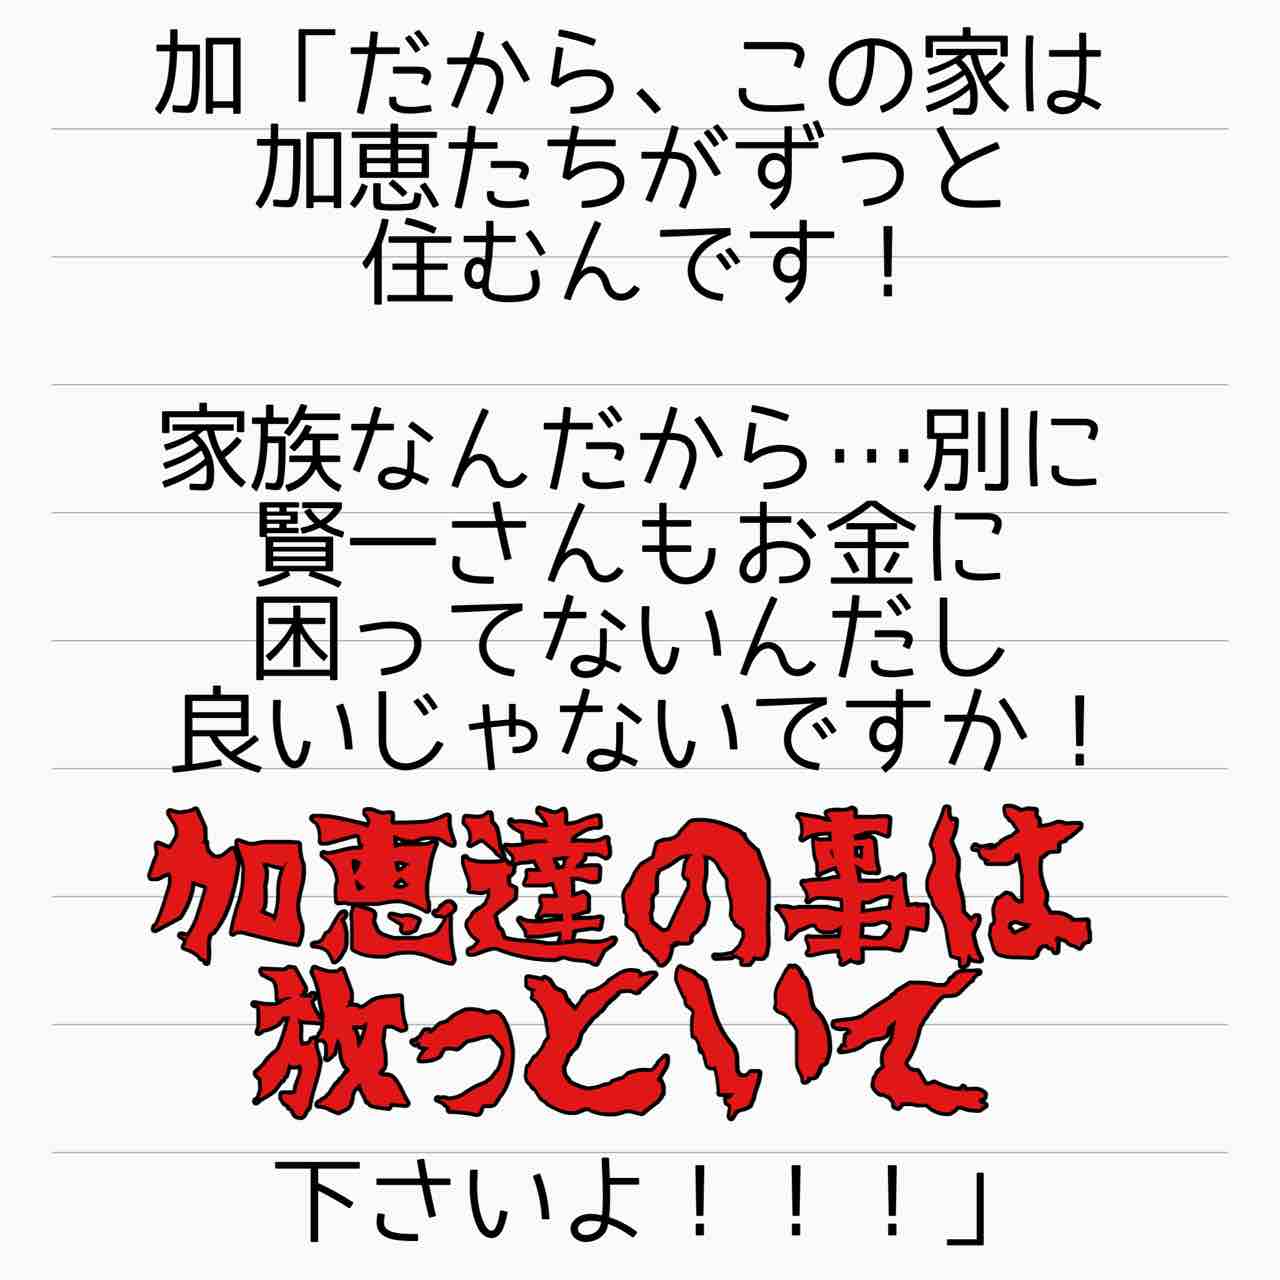 加「だから、この家は
加恵たちがずっと
住むんです！
家族なんだから…別に
賢一さんもお金に
困ってないんだし
良いじゃないですか！
加恵達の事は
放っといて
下さいよ！！！」